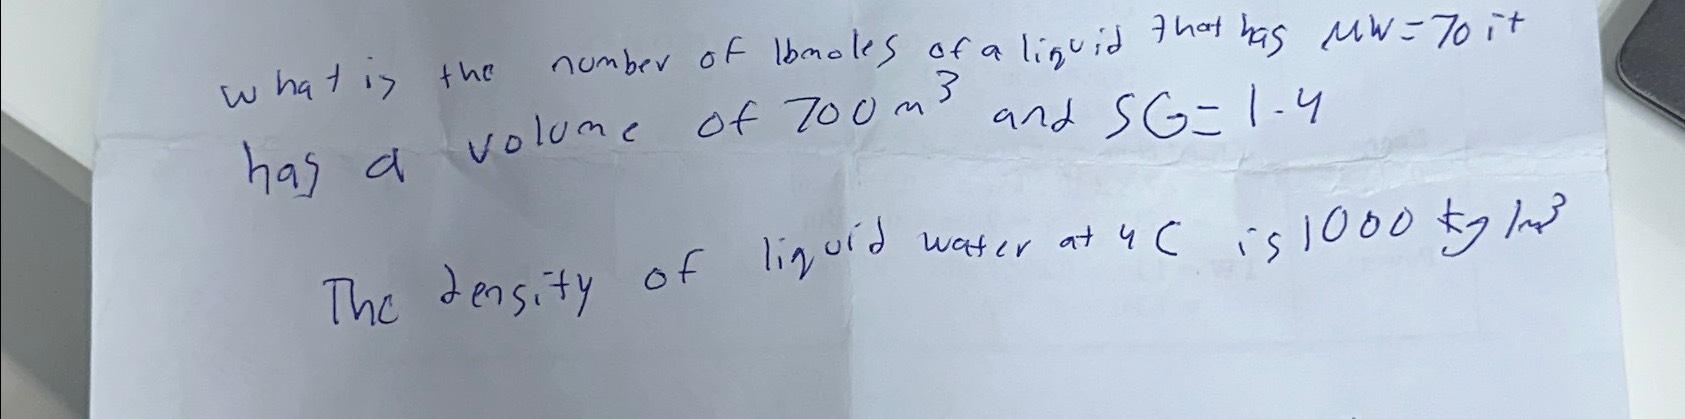 What is the number of lbmoles of a liquid that has MW=70 it
has a volume of 700 m³ and SG=1.4
The density of liquid water at 4 C is 1000 kg/m³